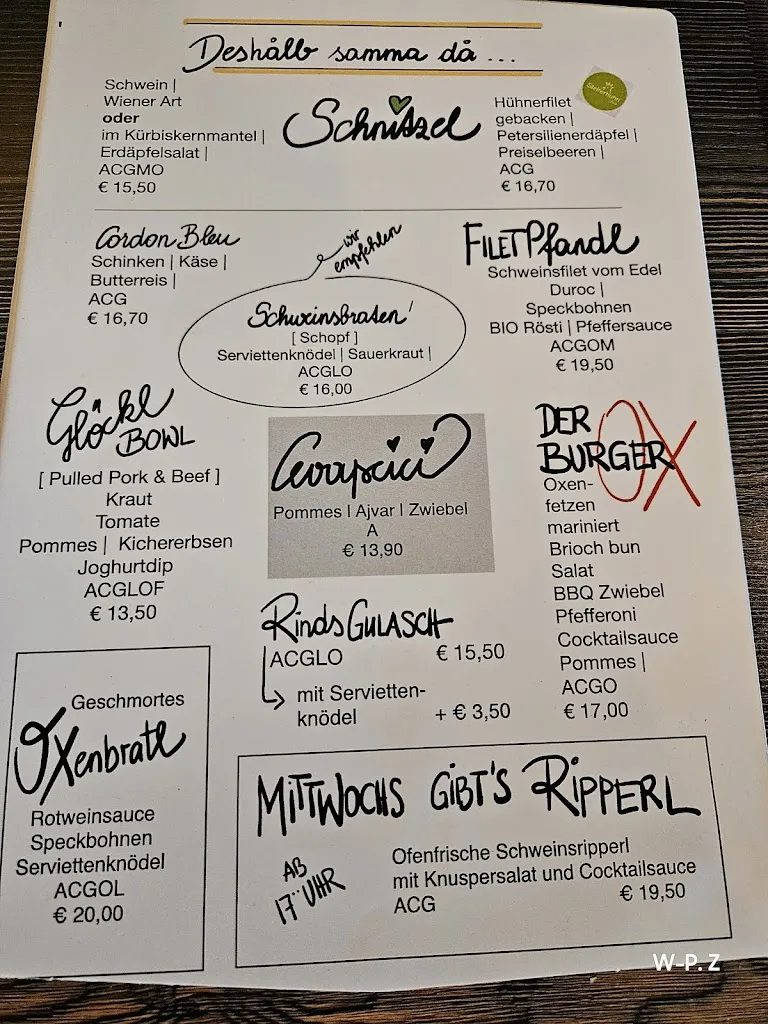 Deshålb samma då ...
Schwein |
Wiener Art
oder
im Kürbiskernmantel |
Erdäpfelsalat |
ACGMO
€ 15,50
Schnitzel
Hühnerfilet
gebacken |
Petersilienerdäpfel |
Preiselbeeren |
ACG
€ 16,70
Cordon Bleu
Schinken | Käse |
Butterreis |
ACG
€ 16,70
wir
empfehlen
Schweinsbraten!
[ Schopf ]
Serviettenknödel | Sauerkraut |
ACGLO
€ 16,00
FILET Pfandl
Schweinsfilet vom Edel
Duroc |
Speckbohnen
BIO Rösti | Pfeffersauce
ACGOM
€ 19,50
Glöckl
BOWL
[ Pulled Pork & Beef ]
Kraut
Tomate
Pommes | Kichererbsen
Joghurtdip
ACGLOF
€ 13,50
Cevapcici
Pommes | Ajvar | Zwiebel
A
€ 13,90
DER
BURGER OX
Oxen-
fetzen
mariniert
Brioch bun
Salat
BBQ Zwiebel
Pfefferoni
Cocktailsauce
Pommes |
ACGO
€ 17,00
Rinds GULASCH
ACGLO € 15,50
mit Servietten-
knödel + € 3,50
Geschmortes
Oxenbratl
Rotweinsauce
Speckbohnen
Serviettenknödel
ACGOL
€ 20,00
MITTWOCHS GIBT'S RIPPERL
AB
17 UHR
Ofenfrische Schweinsripperl
mit Knuspersalat und Cocktailsauce
ACG € 19,50
W-P. Z